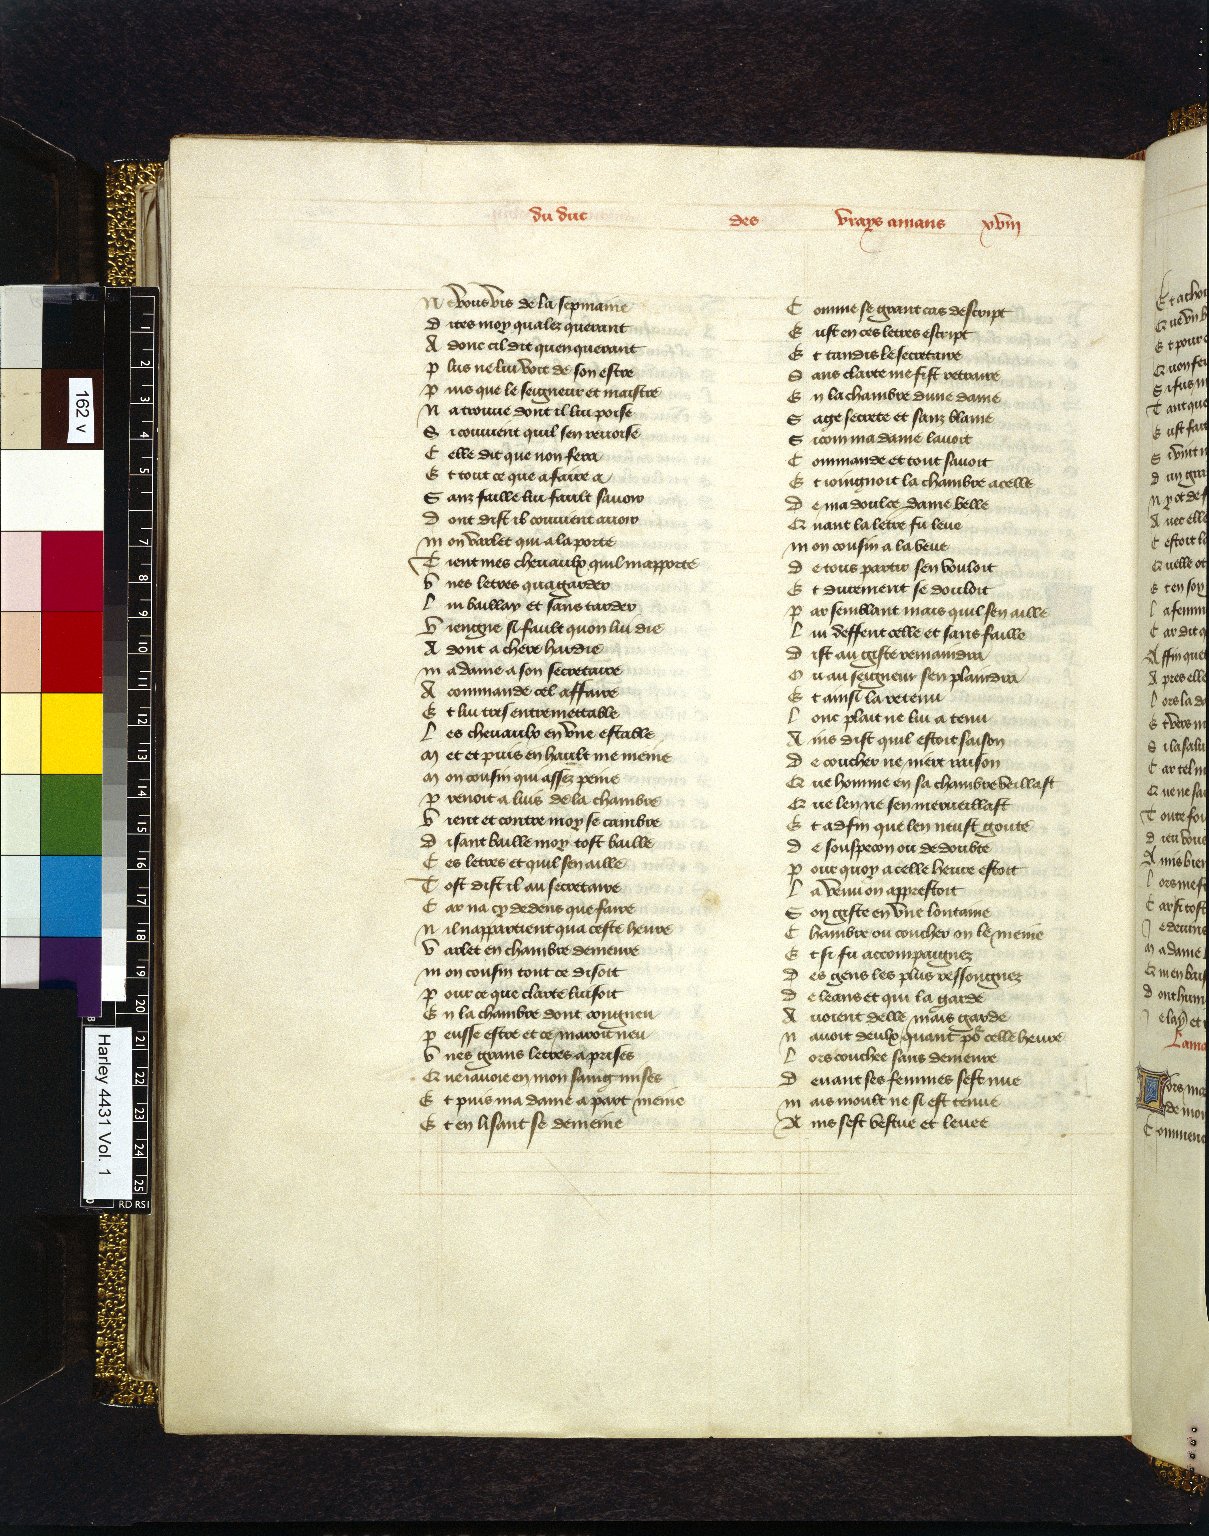 du duc des vrays amans xviii
Ne vous vis de la sepmaine
Dites moy qualez querant
A donc cil dit quenquerant
Plus ne lui voit de son estre
Puis que le seigneur et maistre
N a trouve dont il lui poise
Si couvient quil sen revoise
Celle dit que non fera
Et tout ce que a faire a
Sanz faille lui fault savoir
Dont dist il couvient avoir
Mon varlet qui a la porte
Tient mes chevaulx quil mapporte
Unes letres qua garder
Lui baillay et sans tarder
Viengne si fault quon lui die
A dont a chere hardie
Ma dame a son secretaire
A commande cel affaire
Et lui tres entremettable
Les chevaulx en une estable
Met et puis en hault me meine
Mon cousin qui assez peine
Prenoit a luis de la chambre
Vient et contre moy se cambre
Disant baille moy tost baille
Ces letres et quil sen aille
Tost dist il au secretaire
Car na cy dedens que faire
N il nappartient qua ceste heure
Varlet en chambre demeure
Mon cousin tout ce disoit
Pour ce que clarte luisoit
En la chambre dont congneu
Peusse estre et ce mavoit neu
Unes grans letres a prises
Que iavoie en mon saing mises
Et puis ma dame a part meine
Et en lisant se demeine
Comme se grant cas descript
Eust en ces letres escript
Et tandis le secretaire
Sans clarte me fist retraire
En la chambre dune dame
Sage secrete et sanz blame
Si com ma dame lavoit
Commande et tout savoit
Et ioingnoit la chambre a celle
De ma doulce dame belle
Quant la letre fu leue
Mon cousin a la veue
De tous partir sen vouloit
Et durement se douloit
Par semblant mais quil sen aille
Lui deffent celle et sans faille
Dist au giste remaindra
Ou au seigneur sen plaindra
Et ainsi la retenu
Lonc plait ne lui a tenu
Ains dist quil estoit saison
De coucher ne niert raison
Que homme en sa chambre veillast
Que len ne sen merveillast
Et adfin que len neust goute
De souspecon ou de doubte
Pour quoy a celle heure estoit
La venu on apprestoit
Son giste en une lontaine
Chambre ou coucher on le meine
Et si fu accompaignez
Des gens les plus ressongnez
De leans et qui la garde
Avoient delle mais garde
N avoit deulx quant por celle heure
Lors couchee sans demeure
Devant ses femmes sest nue
Mais moult ne si est tenue
Ains sest vestue et levee
162 v
Harley 4431 Vol. 1